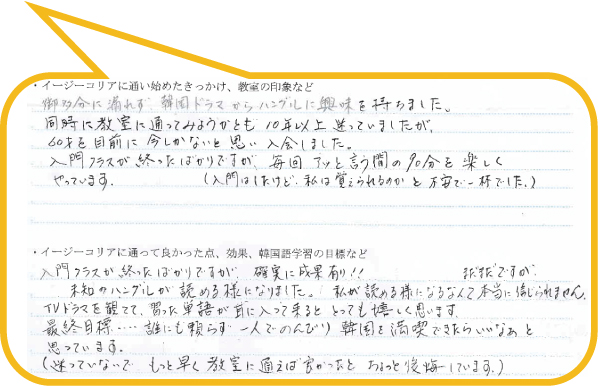 ・イージーコリアに通い始めたきっかけ、教室の印象など
御多分に漏れず 韓国ドラマからハングルに興味を持ちました。
同時に教室に通ってみようかとも 10年以上 迷っていましたが、
60才を目前に 今しかないと思い 入会しました。
入門クラスが終ったばかりですが、毎回 アッと言う間の90分を楽しく
やっています。 (入門はしたけど、私は覚えられるのかと 不安で一杯でした。)
・イージーコリアに通って良かった点、効果、韓国語学習の目標など
入門クラスが終ったばかりですが 確実に成果有り!! まだまだですが、
未知のハングルが読める様になりました。 私が読める様になるなんて本当に信じられません。
TVドラマを観てて、習った単語が耳に入って来ると とっても嬉しく思います。
最終目標‥‥誰にも頼らず一人でのんびり 韓国を満喫できたらいいなぁと
思っています。
(迷っていないで もっと早く教室に通えば良かったと ちょっと後悔しています。)